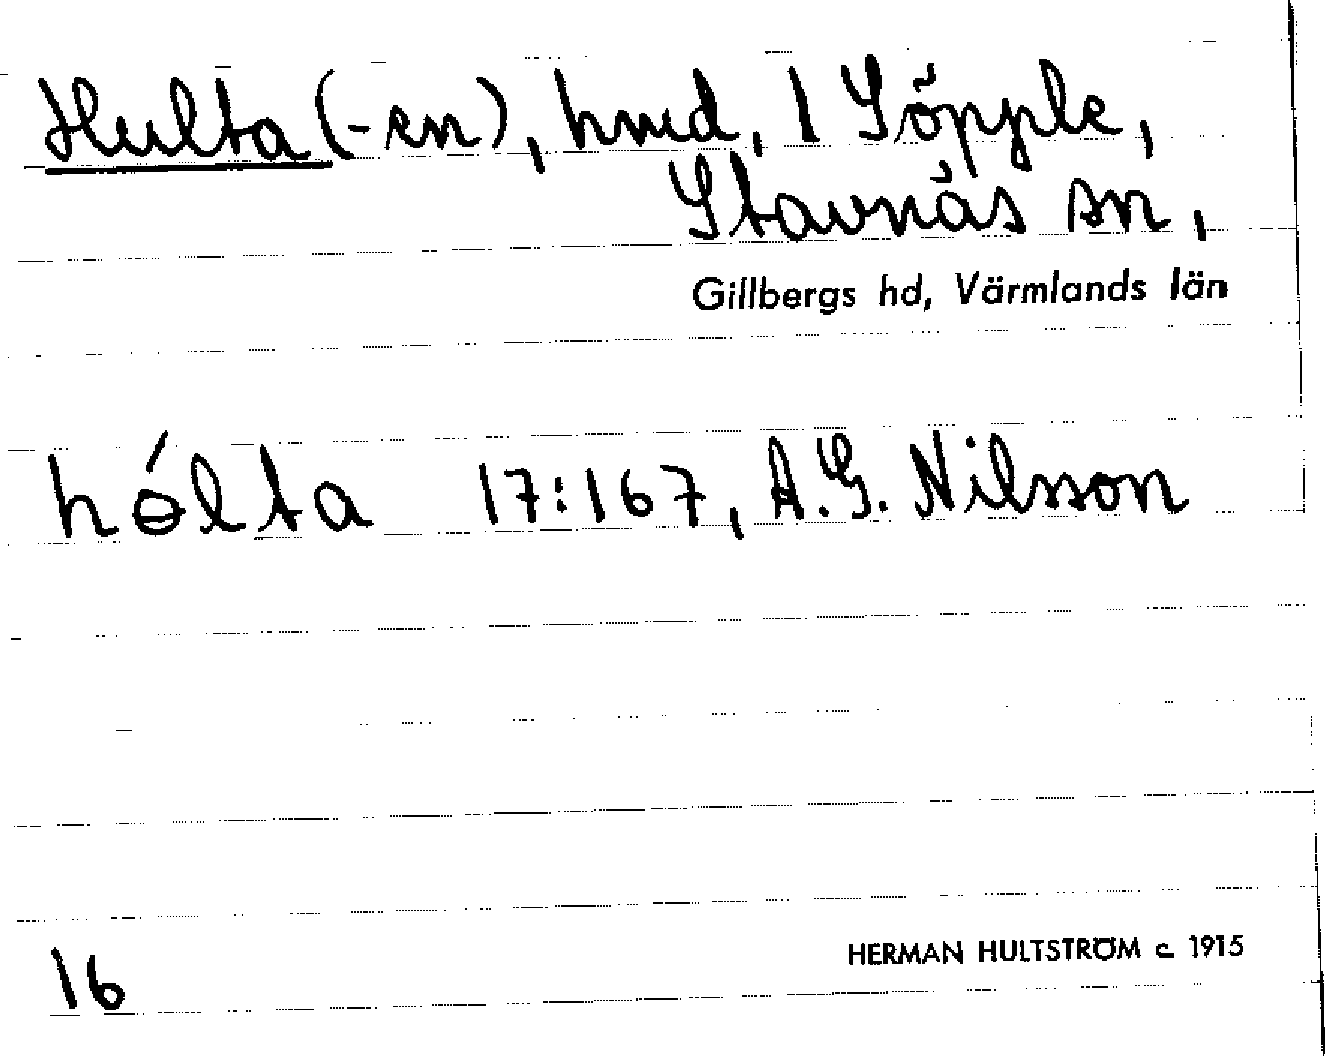 Hulta (-en), hmd, 1 Söpple,
Stavnäs sn,
Gillbergs hd, Värmlands län
hɵ́lta 17:167, A.G. Nilsson
16
HERMAN HULTSTRÖM c. 1915